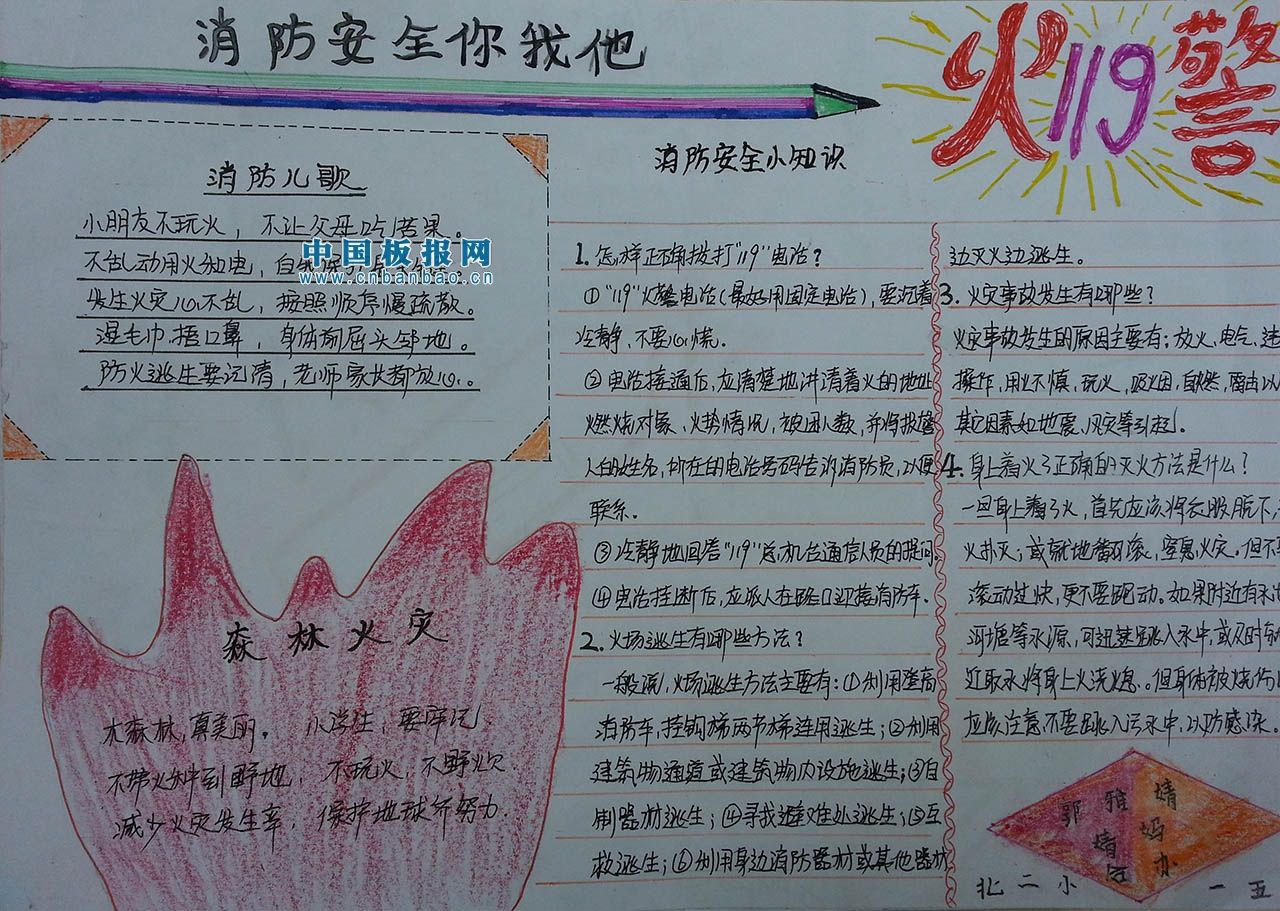 消防安全你我他
火119警
消防儿歌
小朋友不玩火，不让父母吃苦果。
不乱动用火和电，自
发生火灾心不乱，按照顺序慢疏散。
湿毛巾捂口鼻，身体前屈头邻地。
防火逃生要记清，老师家长都放心。
中国板报网
www.cnbanbao.cn
森林火灾
大森林，真美丽。小学生，要牢记
不带火种到野地，不玩火，不野炊
减少火灾发生率，保护地球齐努力.
消防安全小知识
1.怎样正确拨打"119"电话？
①"119"火警电话（最好用固定电话），要沉着
冷静，不要心慌.
②电话接通后，应清楚地讲清着火的地址
燃烧对象、火势情况，被困人数，并将报警
人的姓名，所在的电话号码告诉消防员，以便
联系.
③冷静地回答"119"总机台通信人员的提问
④电话挂断后，应派人在路口迎接消防车.
2.火场逃生有哪些方法？
一般说，火场逃生方法主要有：①利用登高
消防车，挂钩梯两节梯连用逃生；②利用
建筑物通道或建筑物内设施逃生；③自
制器材逃生；④寻找避难处逃生；⑤互
救逃生；⑥利用身边消防器材或其他器材
边灭火边逃生。
3.火灾事故发生有哪些？
火灾事故发生的原因主要有：放火、电气、违
操作，用火不慎，玩火，吸烟，自燃，雷击以
其它因素如地震、风灾等引起.
4.身上着火了正确的灭火方法是什么？
一旦身上着了火，首先应该将衣服脱下，
火扑灭；或就地翻滚，窒息火灾。但不
滚动过快，更不要跑动。如果附近有水
河塘等水源，可迅速跳入水中，或及时
近取水将身上火浇熄。但身体被烧伤
应该注意不要跳入污水中，以防感染。
郭雅婧
妈
办
北二小
一五